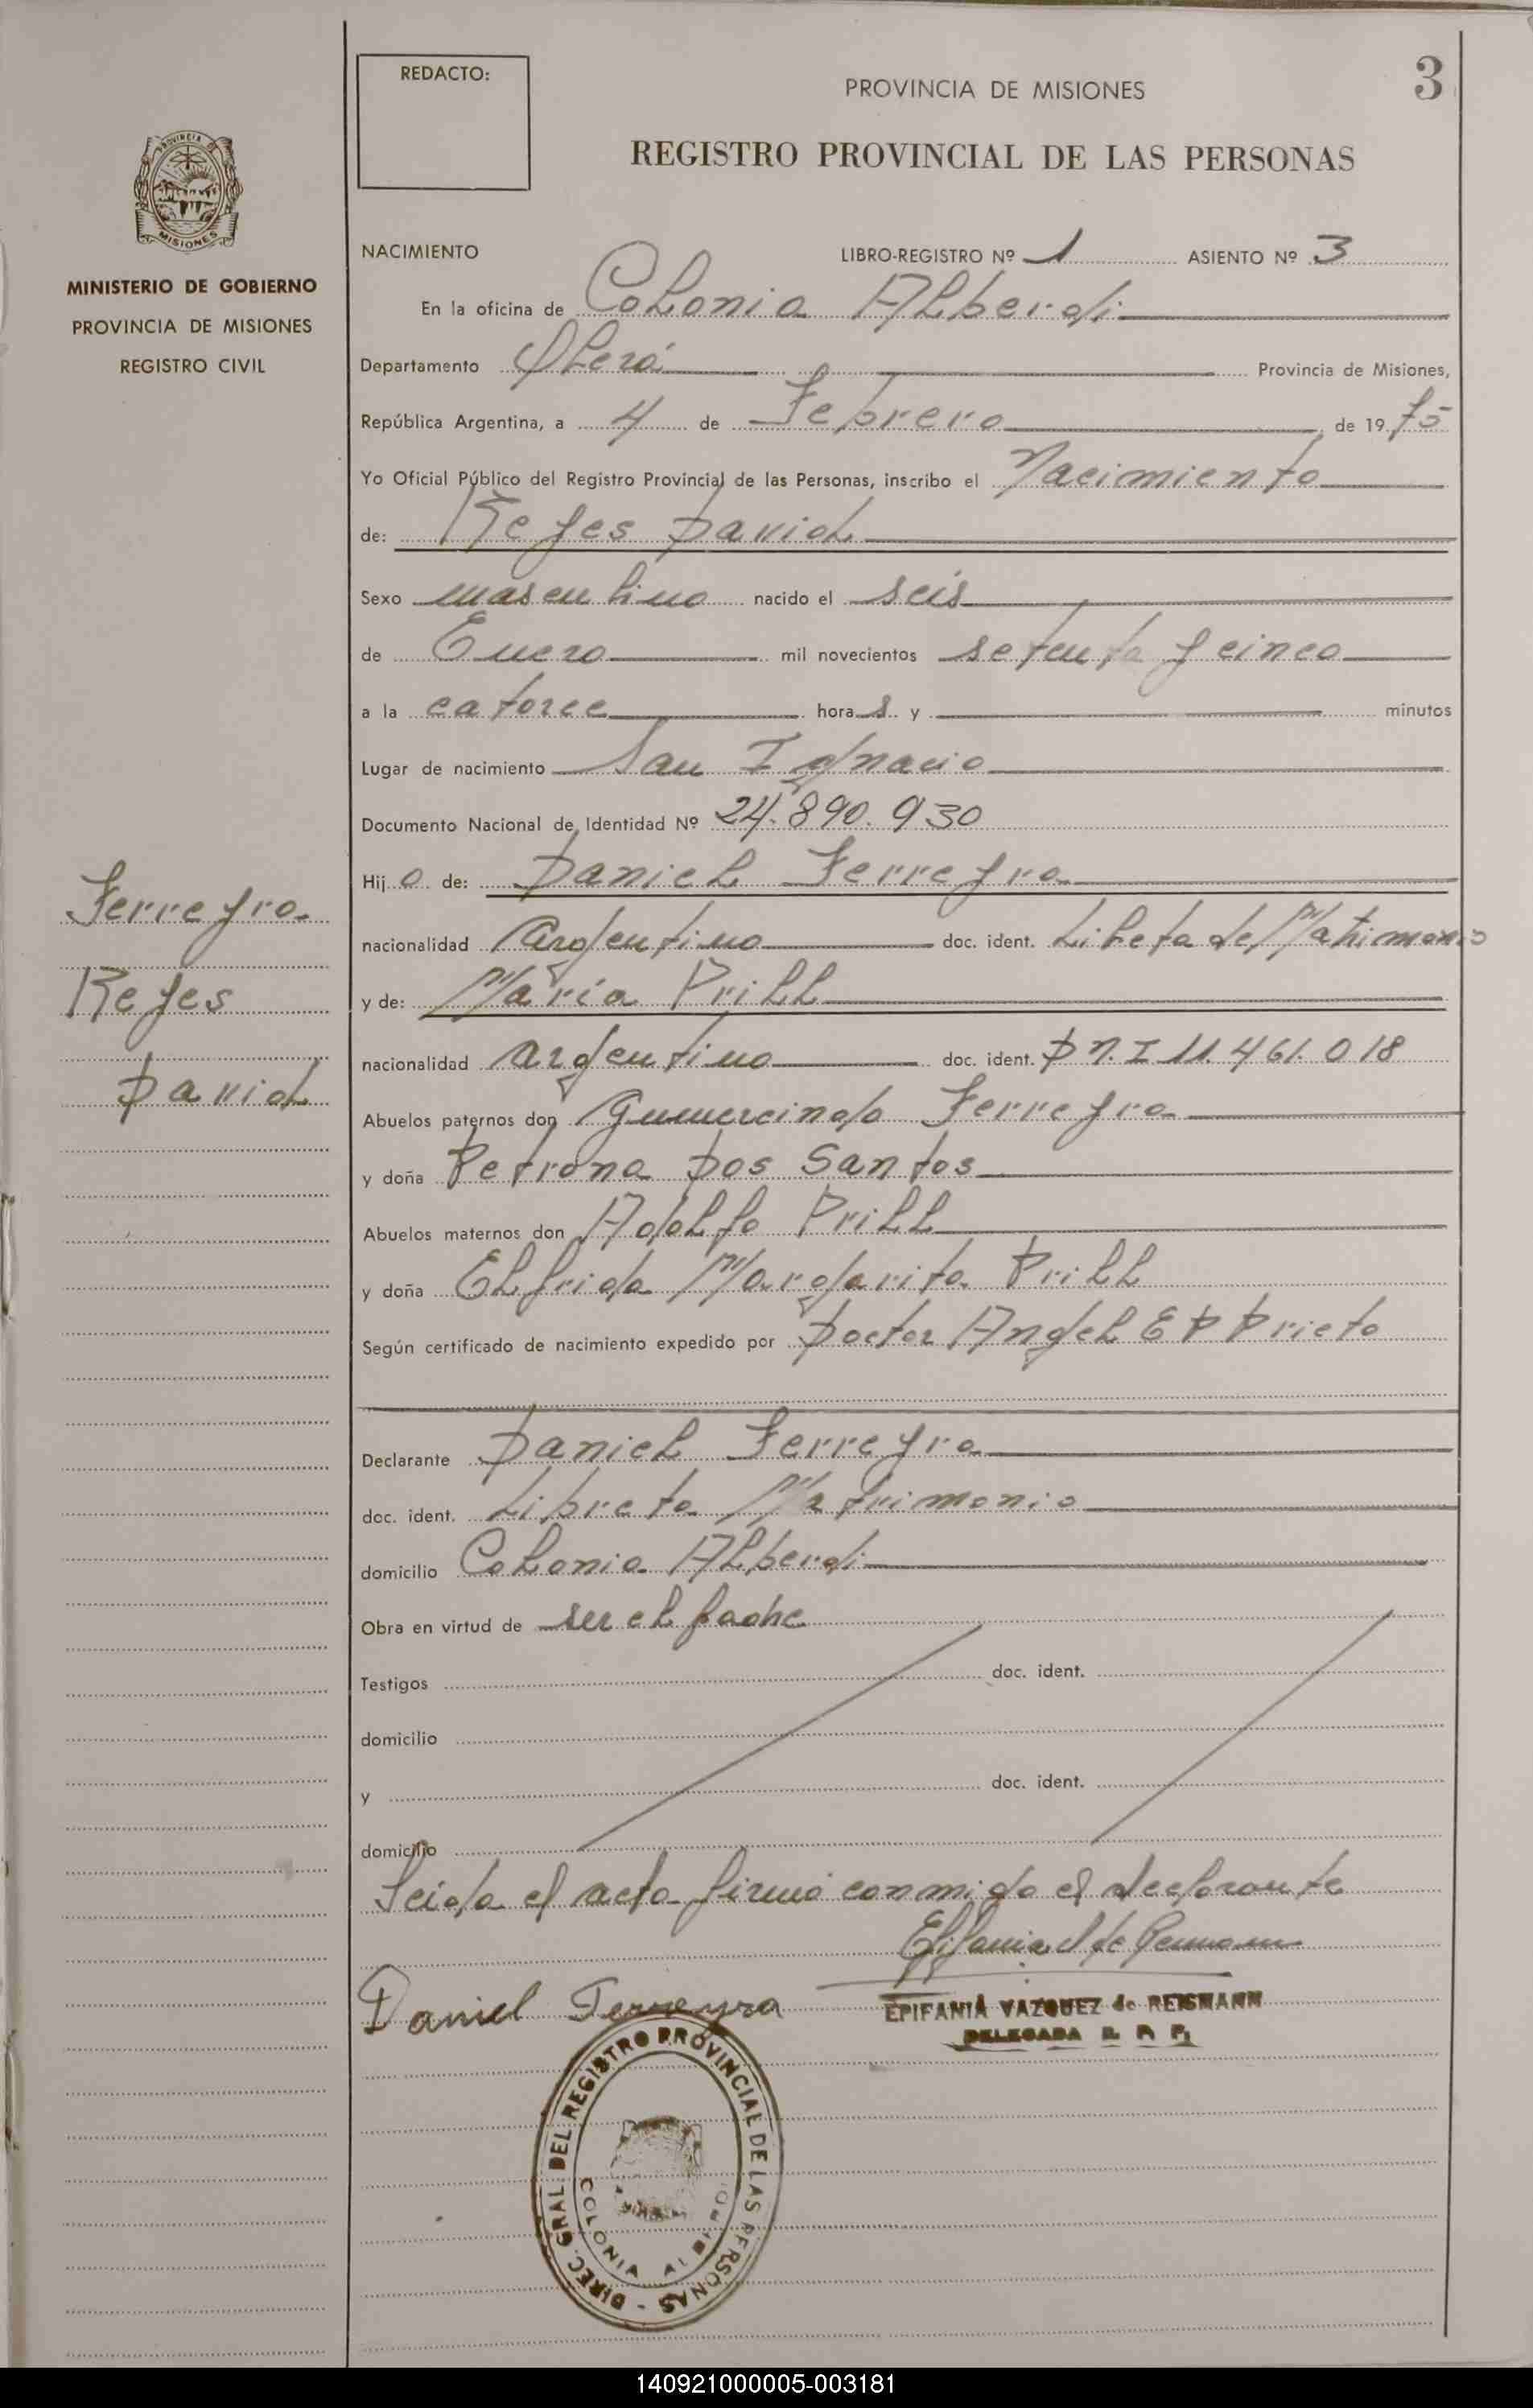 REDACTO:
PROVINCIA DE MISIONES
3
REGISTRO PROVINCIAL DE LAS PERSONAS
PROVINCIA
MISIONES
MINISTERIO DE GOBIERNO
PROVINCIA DE MISIONES
REGISTRO CIVIL
NACIMIENTO LIBRO-REGISTRO Nº 1 ASIENTO Nº 3
En la oficina de Colonia Alberdi
Departamento Oberá Provincia de Misiones,
República Argentina, a 4 de Febrero de 1975
Yo Oficial Público del Registro Provincial de las Personas, inscribo el Nacimiento
de: Reyes David
Sexo masculino nacido el seis
de Enero mil novecientos setenta y cinco
a la catorce horas y minutos
Lugar de nacimiento San Ignacio
Documento Nacional de Identidad Nº 24.890.930
Hijo de: Daniel Ferreyra
nacionalidad Argentina doc. ident. Libeta de Matrimonio
y de: María Prill
nacionalidad argentina doc. ident. D N. I 11.461.018
Abuelos paternos don Gumercindo Ferreyra
y doña Petrona Dos Santos
Abuelos maternos don Adolfo Prill
y doña Elfrida Margarita Prill
Según certificado de nacimiento expedido por Doctor Angel E D Prieto
Declarante Daniel Ferreyra
doc. ident. Libreta Matrimonio
domicilio Colonia Alberdi
Obra en virtud de ser el padre
Testigos doc. ident.
domicilio
y doc. ident.
domicilio
Leida el acta firmó conmigo el declarante
Ferreyra
Reyes
David
Daniel Ferreyra
EPIFANIA VAZQUEZ de REISMANN
DELEGADA R. P. P.
DIREC. GRAL. DEL REGISTRO PROVINCIAL DE LAS PERSONAS -
COLONIA ALBERDI
140921000005-003181